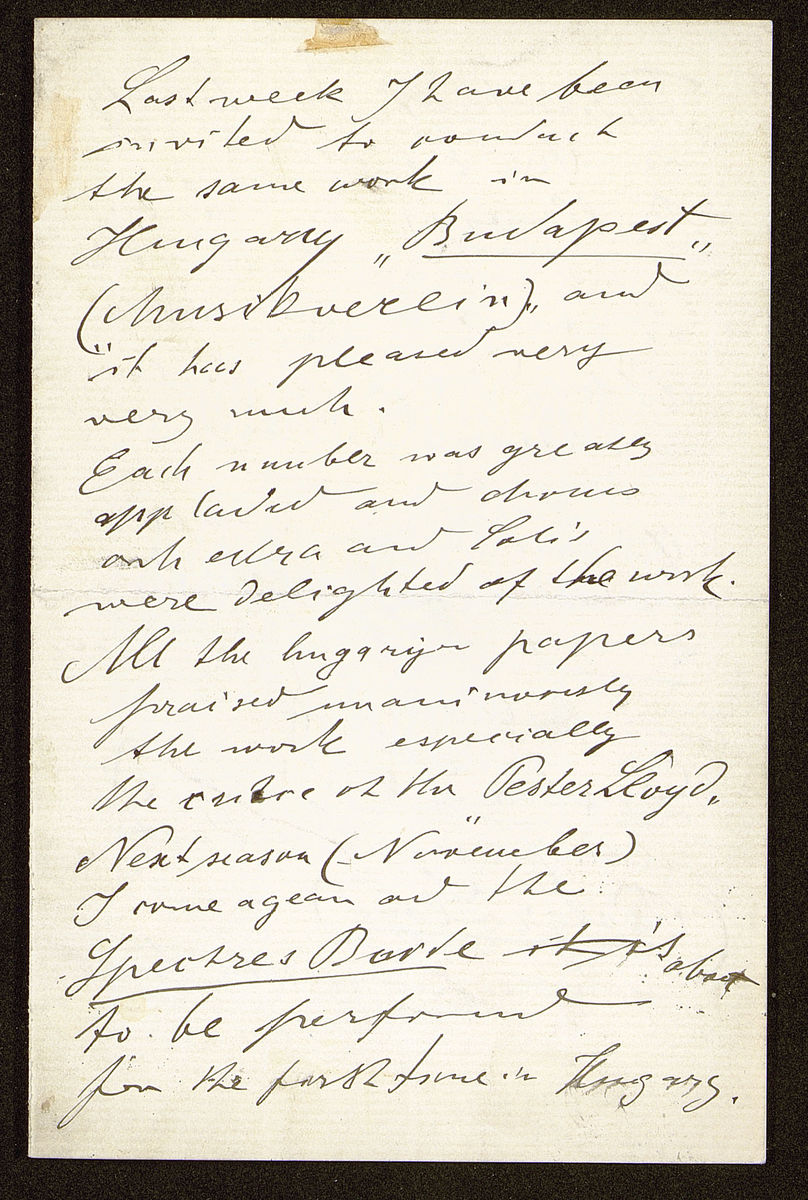 Last week I have been
invited to conduct
the same work in
Hungarny „Budapest„
(Musikverein)„ and
"it has pleased very
very much.
Each number was greatly
applaudid and chorus
orchestra and Soli's
were delighted of the work.
All the hungarijn papers
praised unanimously
the work especially
the critic of the Pester Lloyd.
Next season (November)
I come agean and the
Spectres Bride it is about
to be performed
for the first time in Hungary.